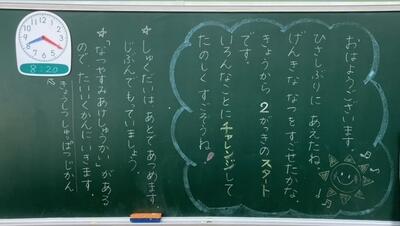 おはようございます。
ひさしぶりに あえたね
げんきな なつをすごせたかな。
きょうから 2がっきのスタート
です。
いろんなことにチャレンジして
たのしく すごそうね!
☆しゅくだいは あとであつめます。
じぶんでもっていましょう。
☆「なつやすみあけしゅうかい」がある
ので、たいいくかんにいきます。
8:20
きょうしつしゅっぱつじかん